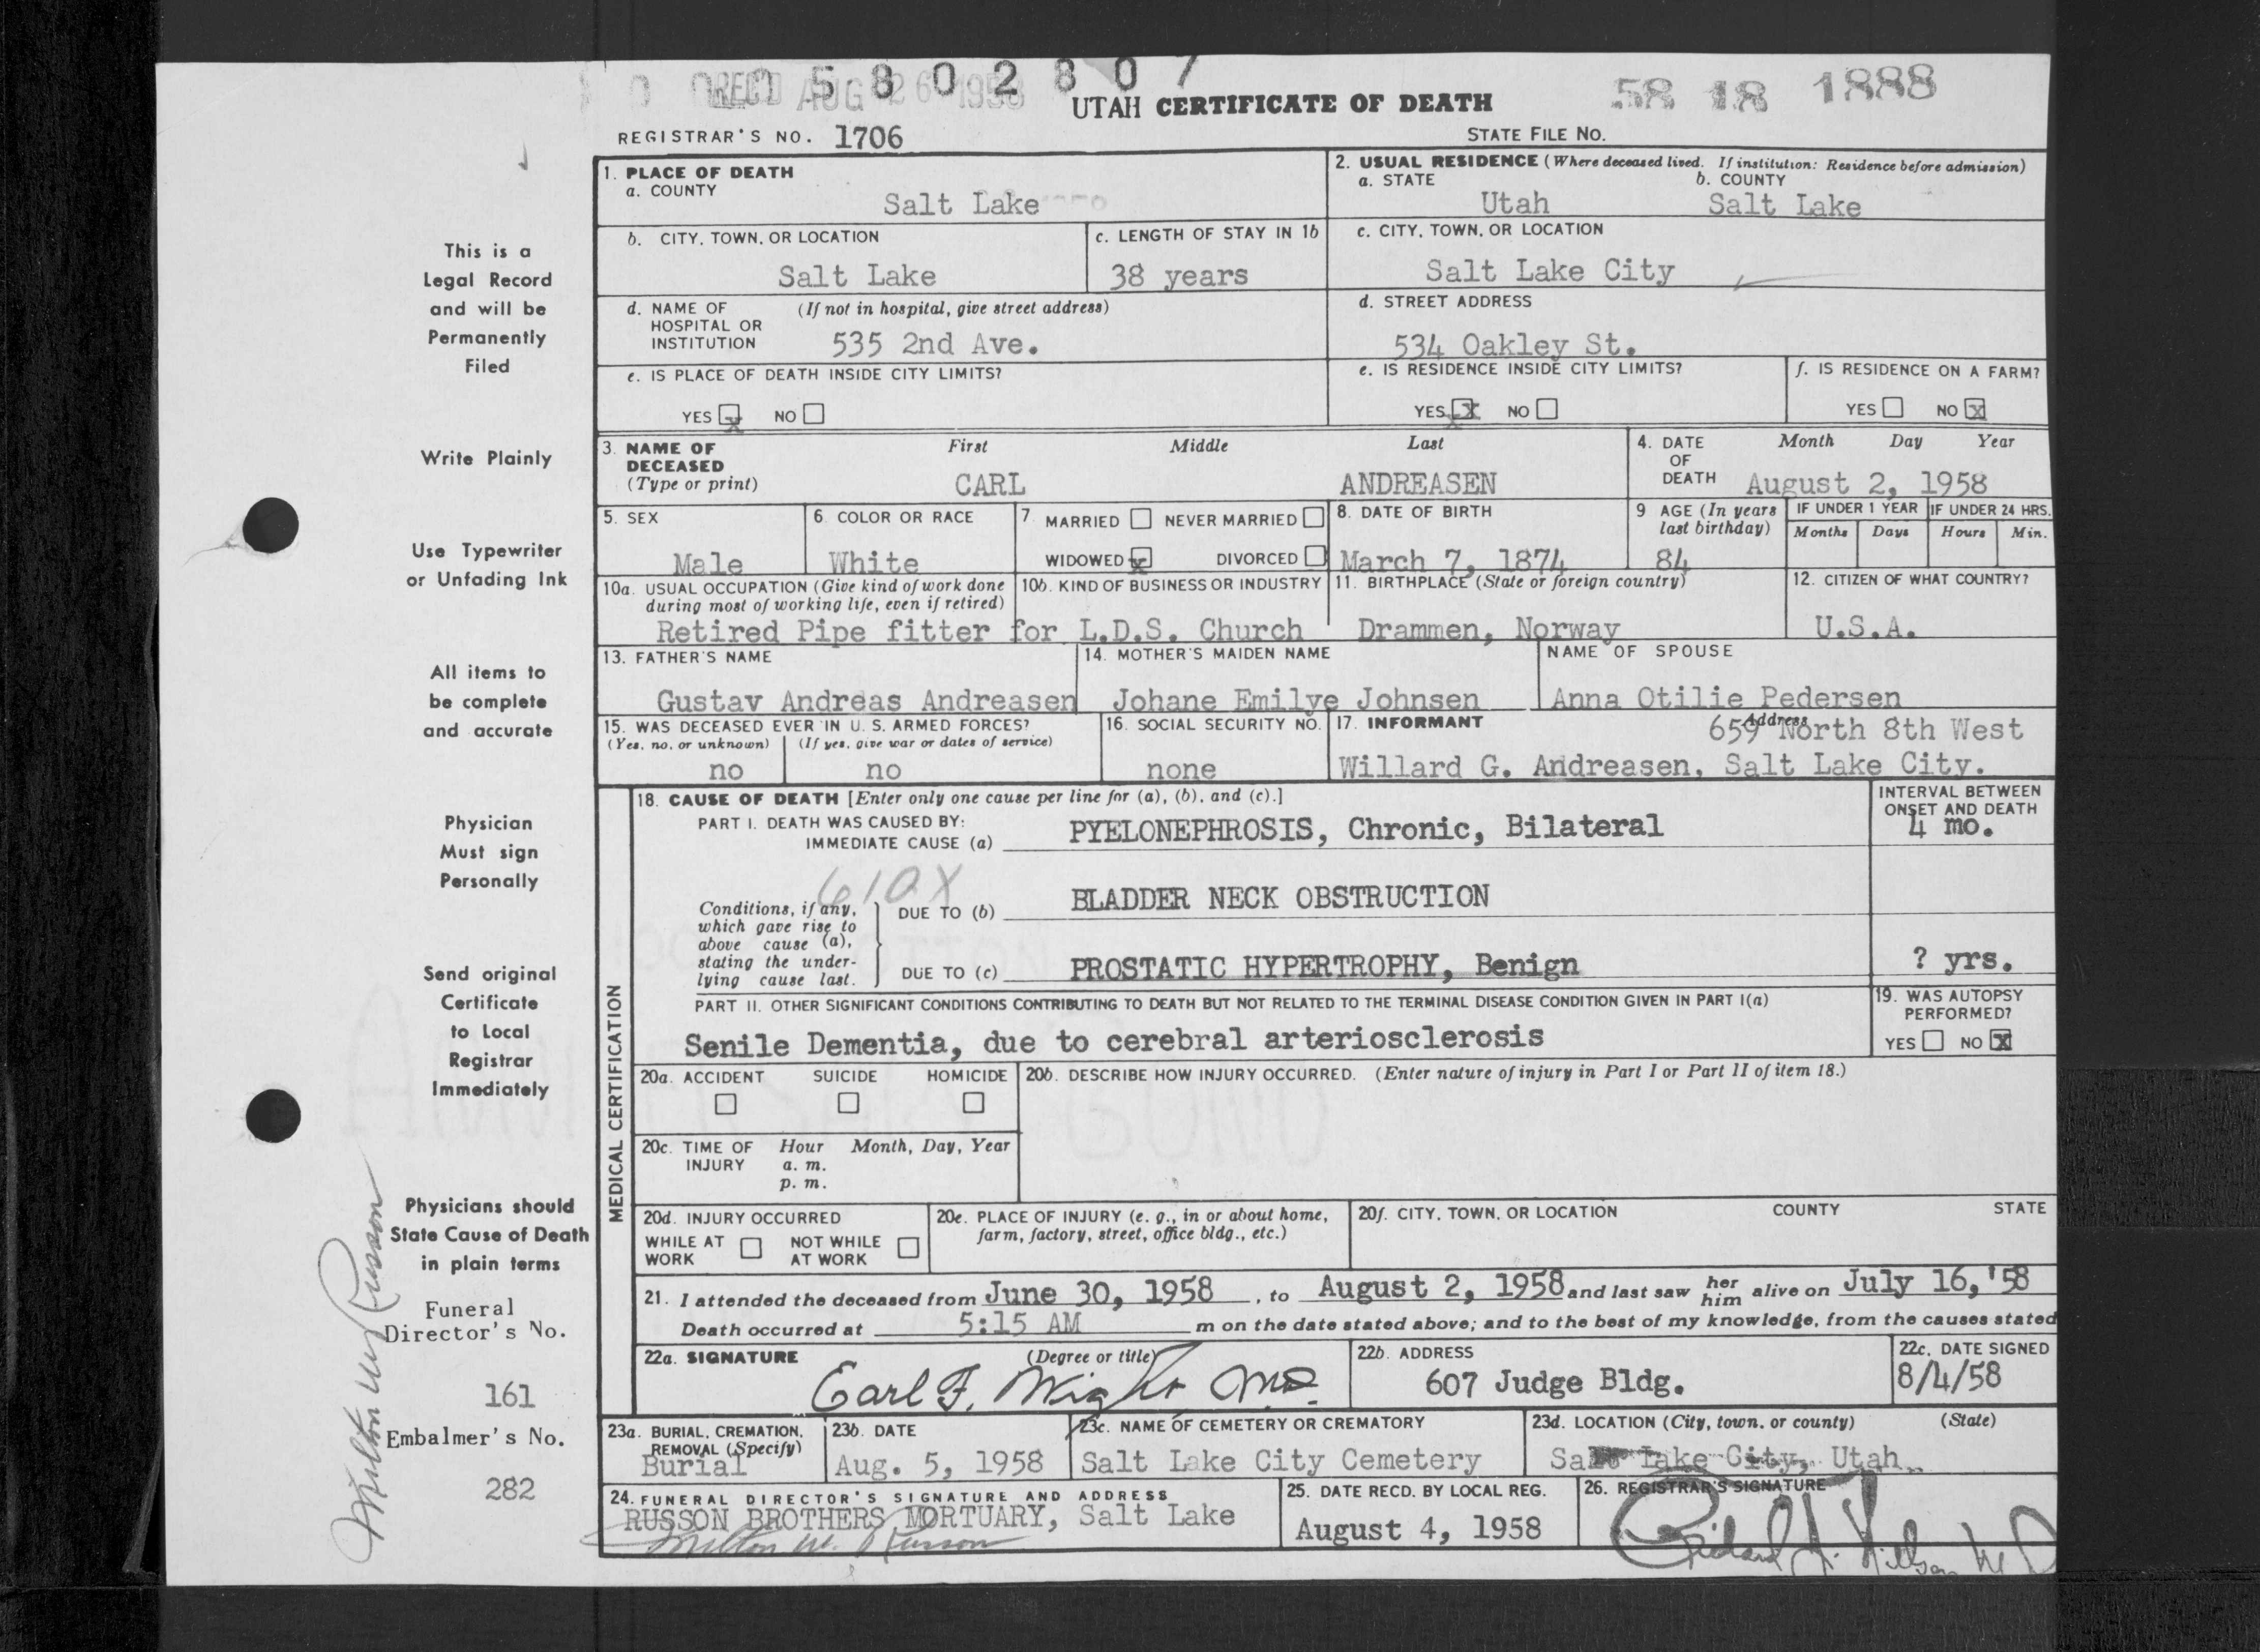 REC'D AUG 26 1958
5802807
58 18 1888
UTAH CERTIFICATE OF DEATH
REGISTRAR'S NO. 1706
STATE FILE NO.
1. PLACE OF DEATH
a. COUNTY
Salt Lake
2. USUAL RESIDENCE (Where deceased lived. If institution: Residence before admission)
a. STATE b. COUNTY
Utah Salt Lake
b. CITY, TOWN, OR LOCATION
Salt Lake
c. LENGTH OF STAY IN 1b
38 years
c. CITY, TOWN, OR LOCATION
Salt Lake City
d. NAME OF (If not in hospital, give street address)
HOSPITAL OR
INSTITUTION 535 2nd Ave.
d. STREET ADDRESS
534 Oakley St.
e. IS PLACE OF DEATH INSIDE CITY LIMITS?
YES x NO
e. IS RESIDENCE INSIDE CITY LIMITS?
YES x NO
f. IS RESIDENCE ON A FARM?
YES NO x
3. NAME OF First Middle Last
DECEASED
(Type or print) CARL ANDREASEN
4. DATE Month Day Year
OF
DEATH August 2, 1958
5. SEX
Male
6. COLOR OR RACE
White
7. MARRIED NEVER MARRIED
WIDOWED x DIVORCED
8. DATE OF BIRTH
March 7, 1874
9 AGE (In years
last birthday)
84
IF UNDER 1 YEAR IF UNDER 24 HRS.
Months Days Hours Min.
10a. USUAL OCCUPATION (Give kind of work done
during most of working life, even if retired)
10b. KIND OF BUSINESS OR INDUSTRY
Retired Pipe fitter for L.D.S. Church
11. BIRTHPLACE (State or foreign country)
Drammen, Norway
12. CITIZEN OF WHAT COUNTRY?
U.S.A.
13. FATHER'S NAME
Gustav Andreas Andreasen
14. MOTHER'S MAIDEN NAME
Johane Emilye Johnsen
NAME OF SPOUSE
Anna Otilie Pedersen
15. WAS DECEASED EVER IN U. S. ARMED FORCES?
(Yes, no, or unknown) (If yes, give war or dates of service)
no no
16. SOCIAL SECURITY NO.
none
17. INFORMANT Address
659 North 8th West
Willard G. Andreasen, Salt Lake City.
MEDICAL CERTIFICATION
18. CAUSE OF DEATH [Enter only one cause per line for (a), (b), and (c).]
INTERVAL BETWEEN
ONSET AND DEATH
PART I. DEATH WAS CAUSED BY:
IMMEDIATE CAUSE (a) PYELONEPHROSIS, Chronic, Bilateral 4 mo.
610X
Conditions, if any,
which gave rise to
above cause (a),
stating the under-
lying cause last.
DUE TO (b) BLADDER NECK OBSTRUCTION
DUE TO (c) PROSTATIC HYPERTROPHY, Benign ? yrs.
PART II. OTHER SIGNIFICANT CONDITIONS CONTRIBUTING TO DEATH BUT NOT RELATED TO THE TERMINAL DISEASE CONDITION GIVEN IN PART I(a)
Senile Dementia, due to cerebral arteriosclerosis
19. WAS AUTOPSY
PERFORMED?
YES NO x
20a. ACCIDENT SUICIDE HOMICIDE
20b. DESCRIBE HOW INJURY OCCURRED. (Enter nature of injury in Part I or Part II of item 18.)
20c. TIME OF Hour Month, Day, Year
INJURY a. m.
p. m.
20d. INJURY OCCURRED
WHILE AT NOT WHILE
WORK AT WORK
20e. PLACE OF INJURY (e. g., in or about home,
farm, factory, street, office bldg., etc.)
20f. CITY, TOWN, OR LOCATION COUNTY STATE
21. I attended the deceased from June 30, 1958, to August 2, 1958 and last saw her him alive on July 16, '58
Death occurred at 5:15 AM m on the date stated above; and to the best of my knowledge, from the causes stated
22a. SIGNATURE (Degree or title)
Earl F. Wight M.D.
22b. ADDRESS
607 Judge Bldg.
22c. DATE SIGNED
8/4/58
23a. BURIAL, CREMATION,
REMOVAL (Specify)
Burial
23b. DATE
Aug. 5, 1958
23c. NAME OF CEMETERY OR CREMATORY
Salt Lake City Cemetery
23d. LOCATION (City, town, or county) (State)
Salt Lake City, Utah
24. FUNERAL DIRECTOR'S SIGNATURE AND ADDRESS
RUSSON BROTHERS MORTUARY, Salt Lake
Milton W. Russon
25. DATE RECD. BY LOCAL REG.
August 4, 1958
26. REGISTRAR'S SIGNATURE
This is a
Legal Record
and will be
Permanently
Filed
Write Plainly
Use Typewriter
or Unfading Ink
All items to
be complete
and accurate
Physician
Must sign
Personally
Send original
Certificate
to Local
Registrar
Immediately
Physicians should
State Cause of Death
in plain terms
Funeral
Director's No.
161
Embalmer's No.
282
Milton W Russon